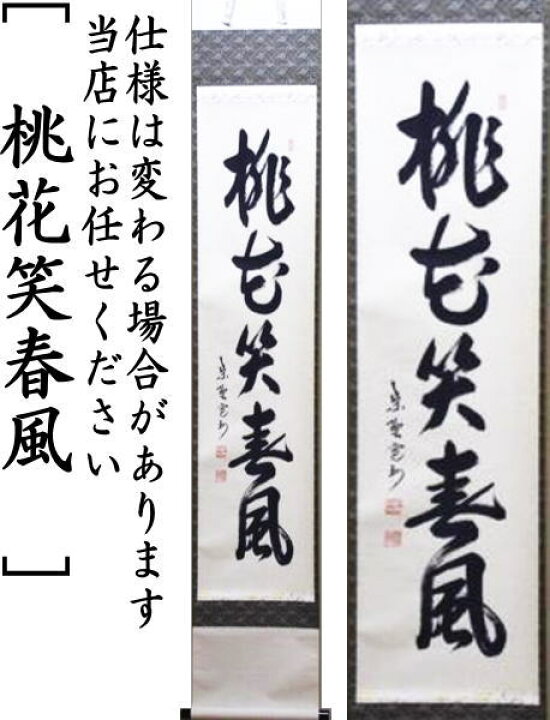 仕様は変わる場合があります
当店にお任せください
［桃花笑春風］
桃花笑春風
桃花笑春風